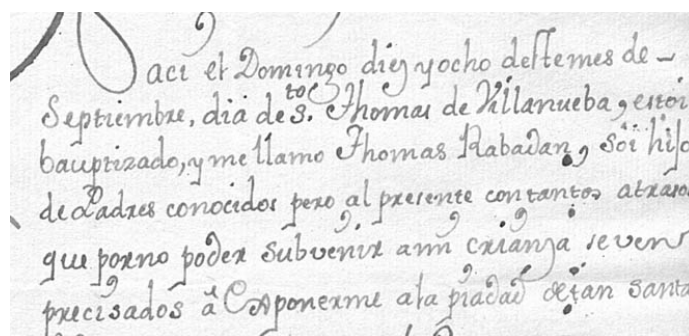 Naci el Domingo diez y ocho deste mes de
Septiembre, dia de Sto. Thomas de Villanueba, estoi
bauptizado, y me llamo Thomas Rabadan, soi hijo
de Padres conocidos pero al presente con tantos atrasos
que por no poder subvenir a mi crianza se ven
precisados a exponerme a la piadad de tan santa